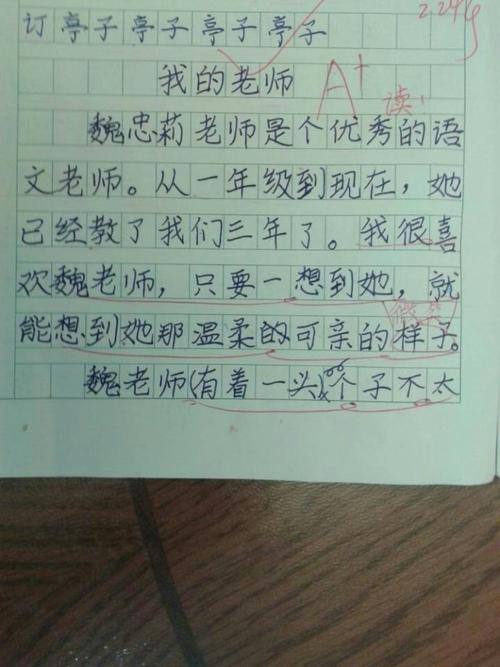 订亭子亭子亭子亭子
我的老师
A+
读!
魏忠莉老师是个优秀的语
文老师。从一年级到现在，她
已经教了我们三年了。我很喜
欢魏老师，只要一想到她，就
能想到她那温柔的可亲的样子。
魏老师(有着一头)个子不太